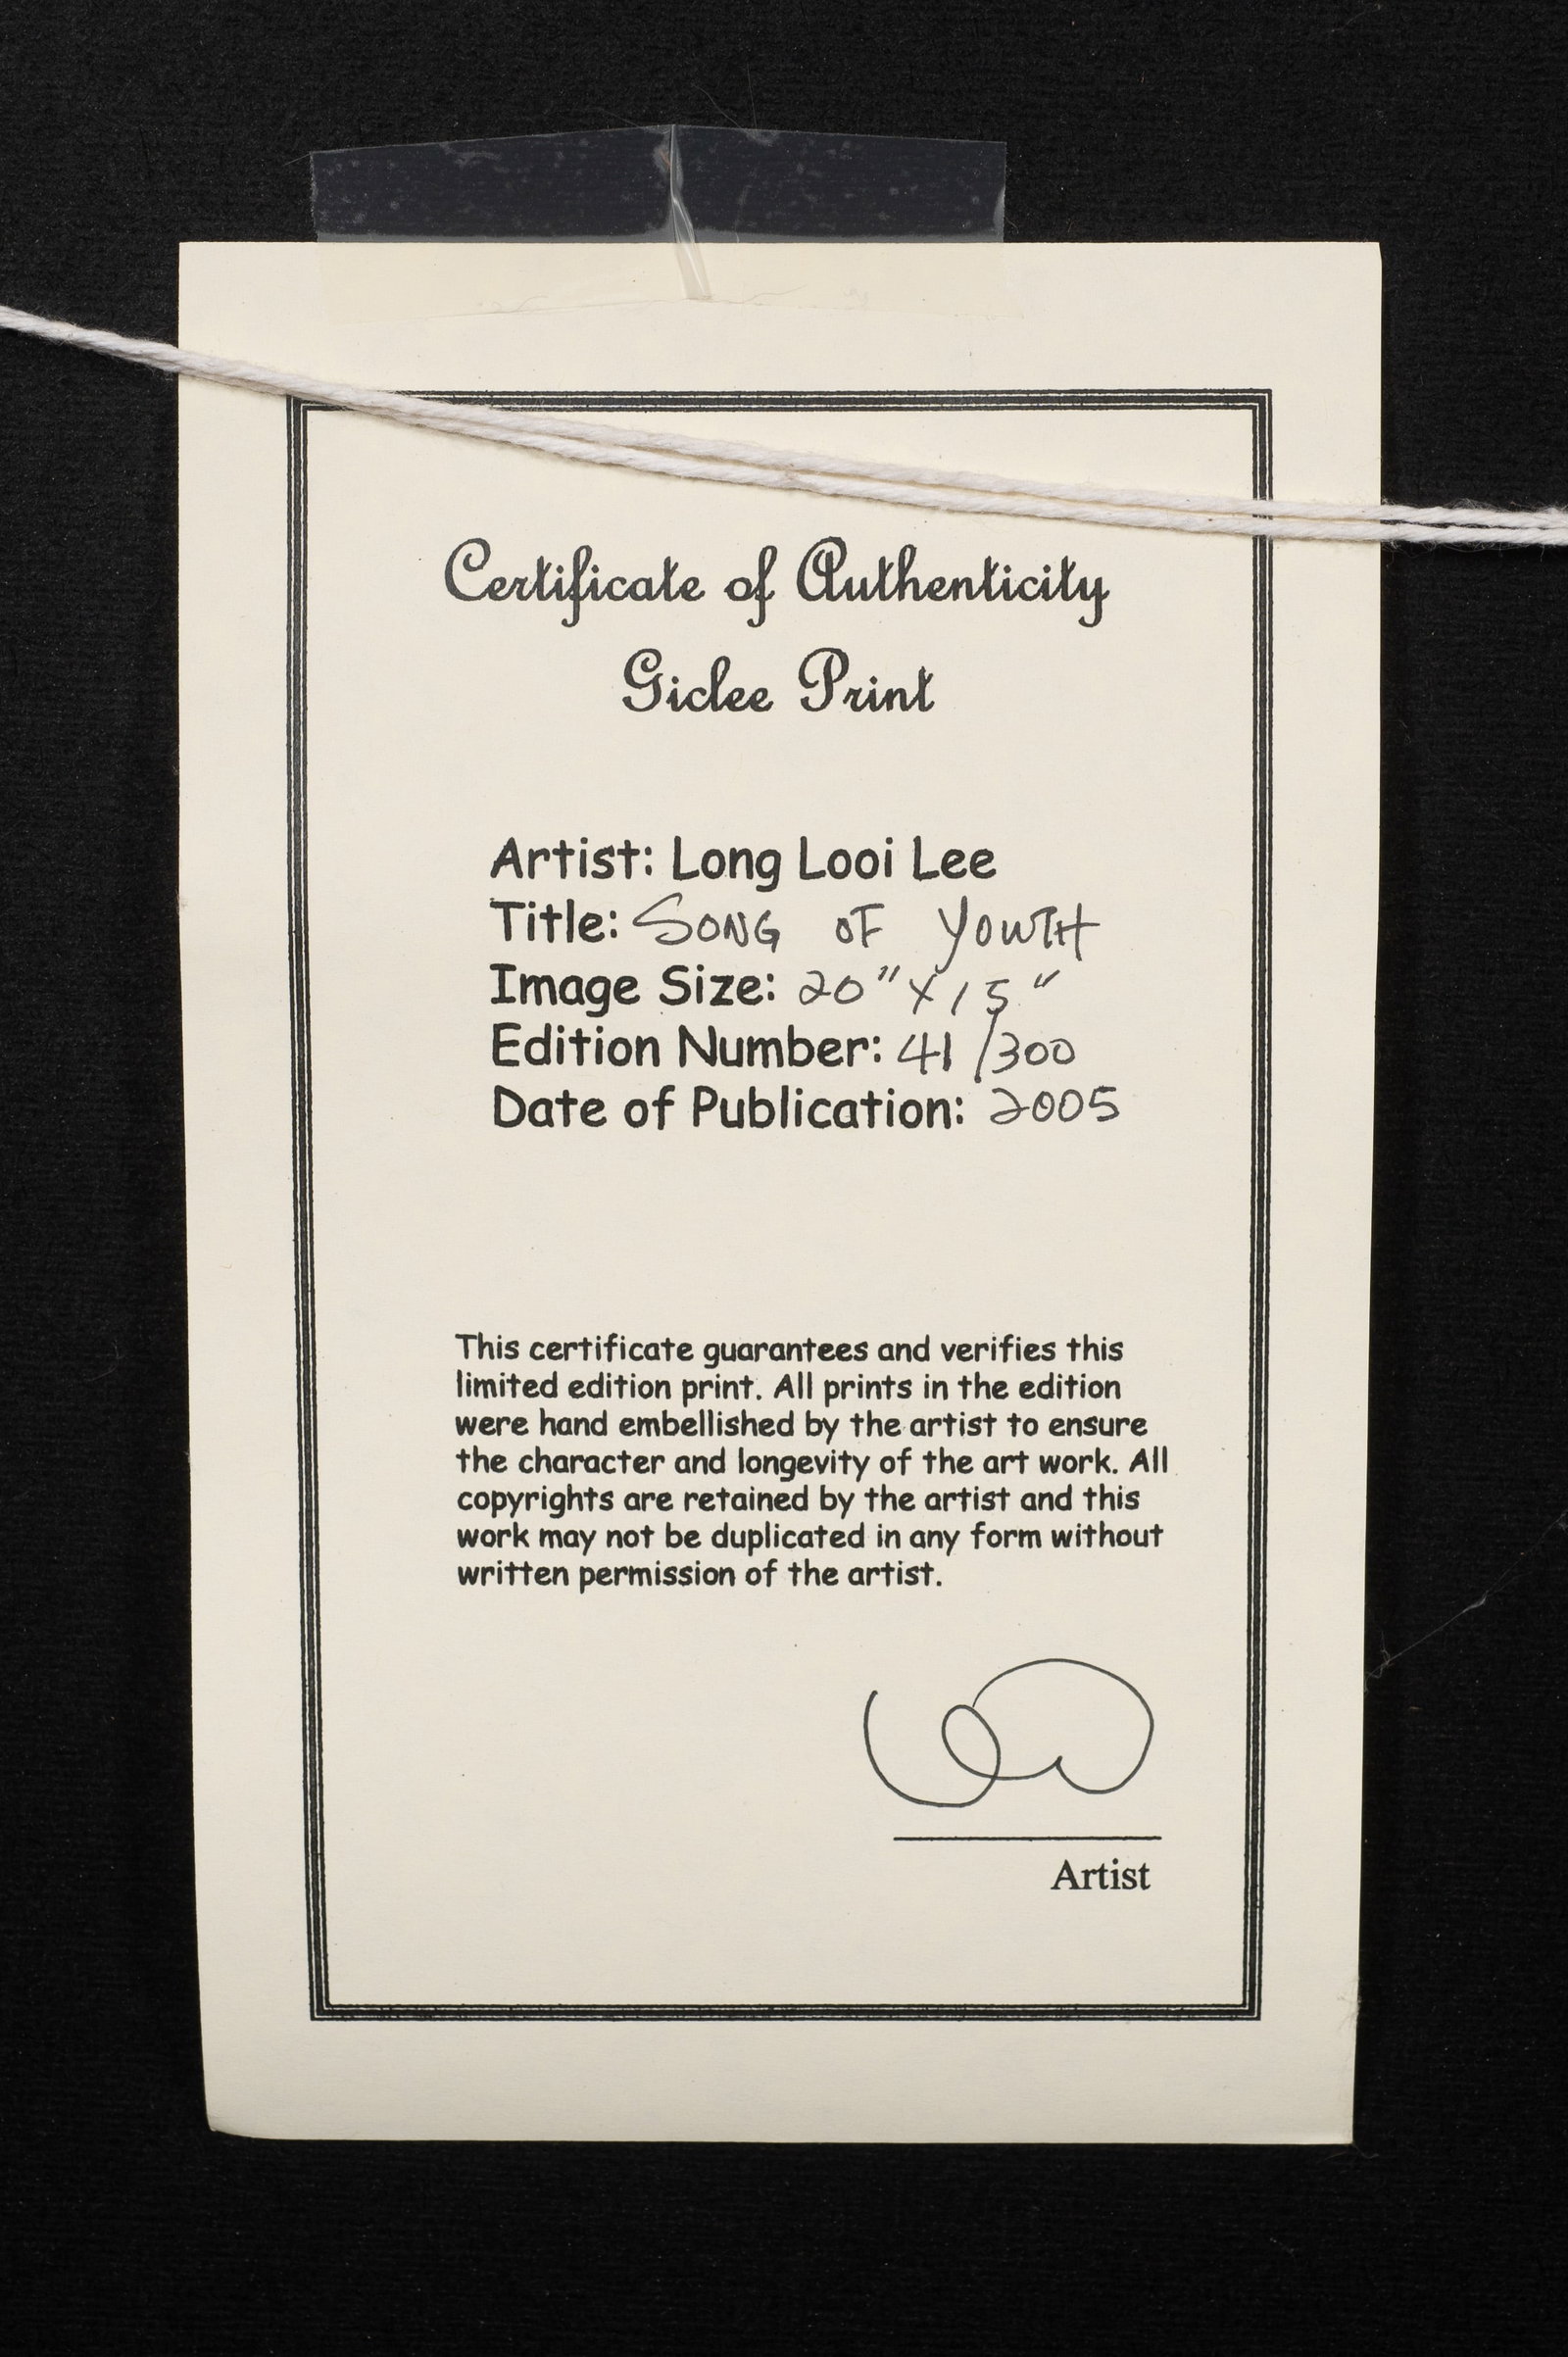 Certificate of Authenticity
Giclee Print
Artist: Long Looi Lee
Title: SONG OF YOUTH
Image Size: 20" X 15"
Edition Number: 41/300
Date of Publication: 2005
This certificate guarantees and verifies this
limited edition print. All prints in the edition
were hand embellished by the artist to ensure
the character and longevity of the art work. All
copyrights are retained by the artist and this
work may not be duplicated in any form without
written permission of the artist.
Artist